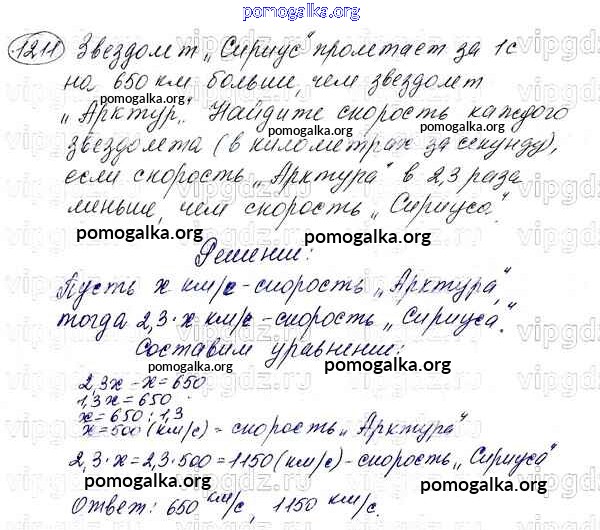 pomogalka.org
1211 Звездолет „Сириус" пролетает за 1с
на 650 км больше, чем звездолет
pomogalka.org
„Арктур". Найдите скорость каждого
pomogalka.org
звездолета (в километрах за секунду),
если скорость „Арктура" в 2,3 раза
меньше, чем скорость „Сириуса".
pomogalka.org pomogalka.org
Решение:
Пусть x км/с - скорость „Арктура",
тогда 2,3·x км/с - скорость „Сириуса".
Составим уравнение:
pomogalka.org
2,3x - x = 650
1,3x = 650
x = 650 : 1,3
x = 500 (км/с) - скорость „Арктура"
pomogalka.org
2,3·x = 2,3·500 = 1150 (км/с) - скорость „Сириуса"
pomogalka.org
Ответ: 650 км/с, 1150 км/с.
pomogalka.org